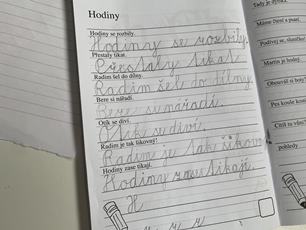 Hodiny
Hodiny se rozbily.
Hodiny se rozbily.
Přestaly tikat.
Přestaly tikat.
Radim šel do dílny.
Radim šel do dílny.
Bere si nářadí.
Bere si nářadí.
Otík se diví.
Otík se diví.
Radim je tak šikovný!
Radim je tak šikovn
Hodiny zase tikají.
Hodiny zase tikají.
H
Tady je
Máme čtení s
Podívej se,
Martin je hodný.
Obouváš si
Pes kouše
Čtiš
pohledy